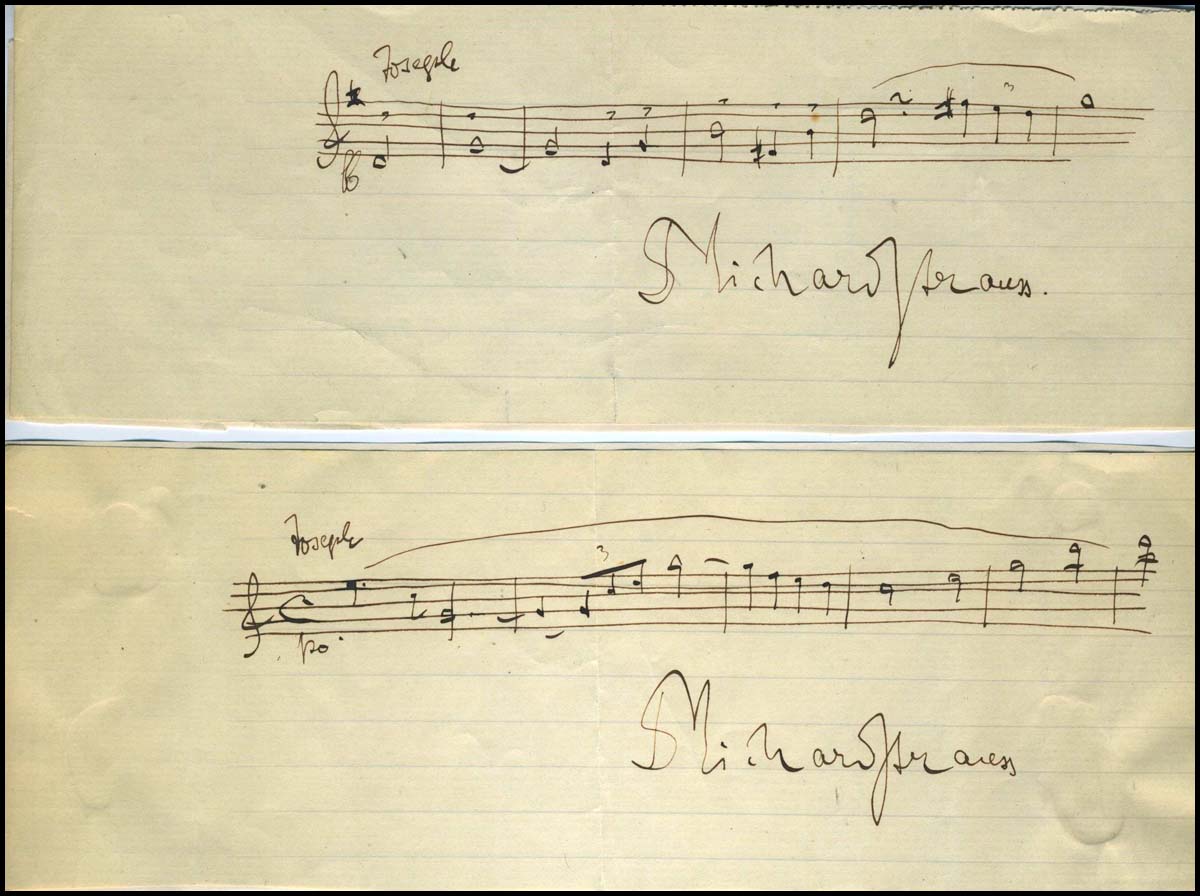 Joseph
3
ff
Richard Strauss.
Joseph
3
po.
Richard Strauss